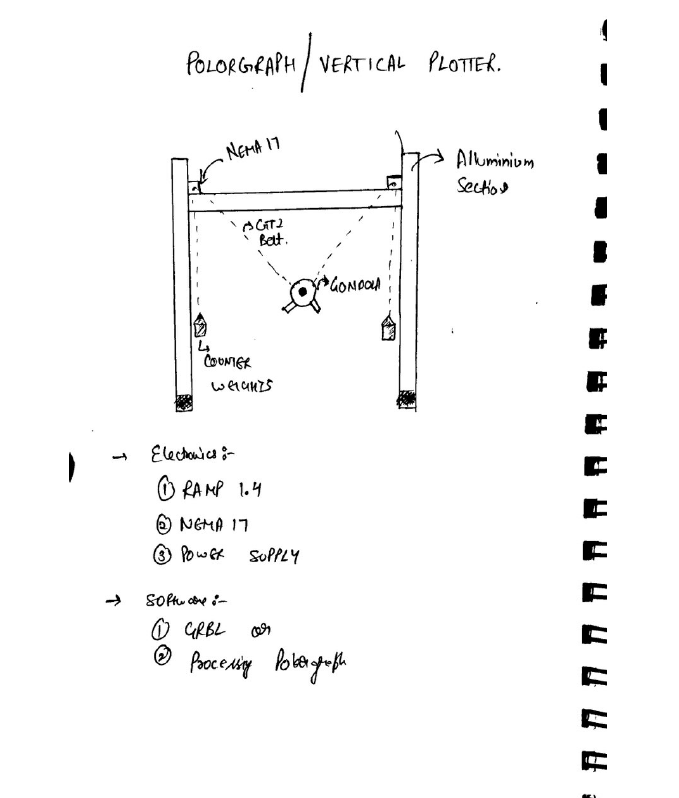 POLORGRAPH / VERTICAL PLOTTER.
NEMA 17
Alluminium
Section
GT2
Belt.
GONDOLA
COUNTER
WEIGHTS
→ Electronics :-
① RAMP 1.4
② NEMA 17
③ POWER SUPPLY
→ Software :-
① GRBL or
② Processing Polorgraph